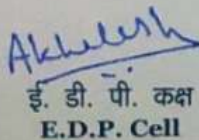 Akhilesh
ई. डी. पी. कक्ष
E.D.P. Cell